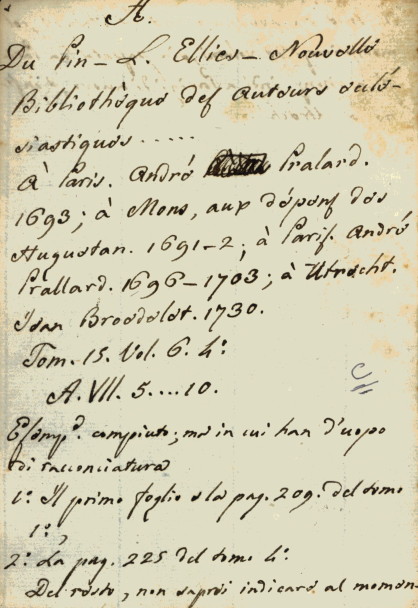 A.
Du Pin - L. Ellies - Nouvelle
Bibliothèque des auteurs eclé-
siastiques .....
à Paris. André Pralard.
1693; à Mons, aux dépens des
Augustan. 1691-2; à Paris. André
Prallard. 1696-1703; à Utrecht.
Jean Broedelet. 1730.
Tom. 15. Vol. 6. 4º.
A. VII. 5....10.
compiuto; ma in cui han d'uopo
di racconciatura
1º. Il primo foglio e la pag. 209. del tomo
1º;
2º. La pag. 225 del tomo 4º.
Del resto, non saprei indicare al momen-